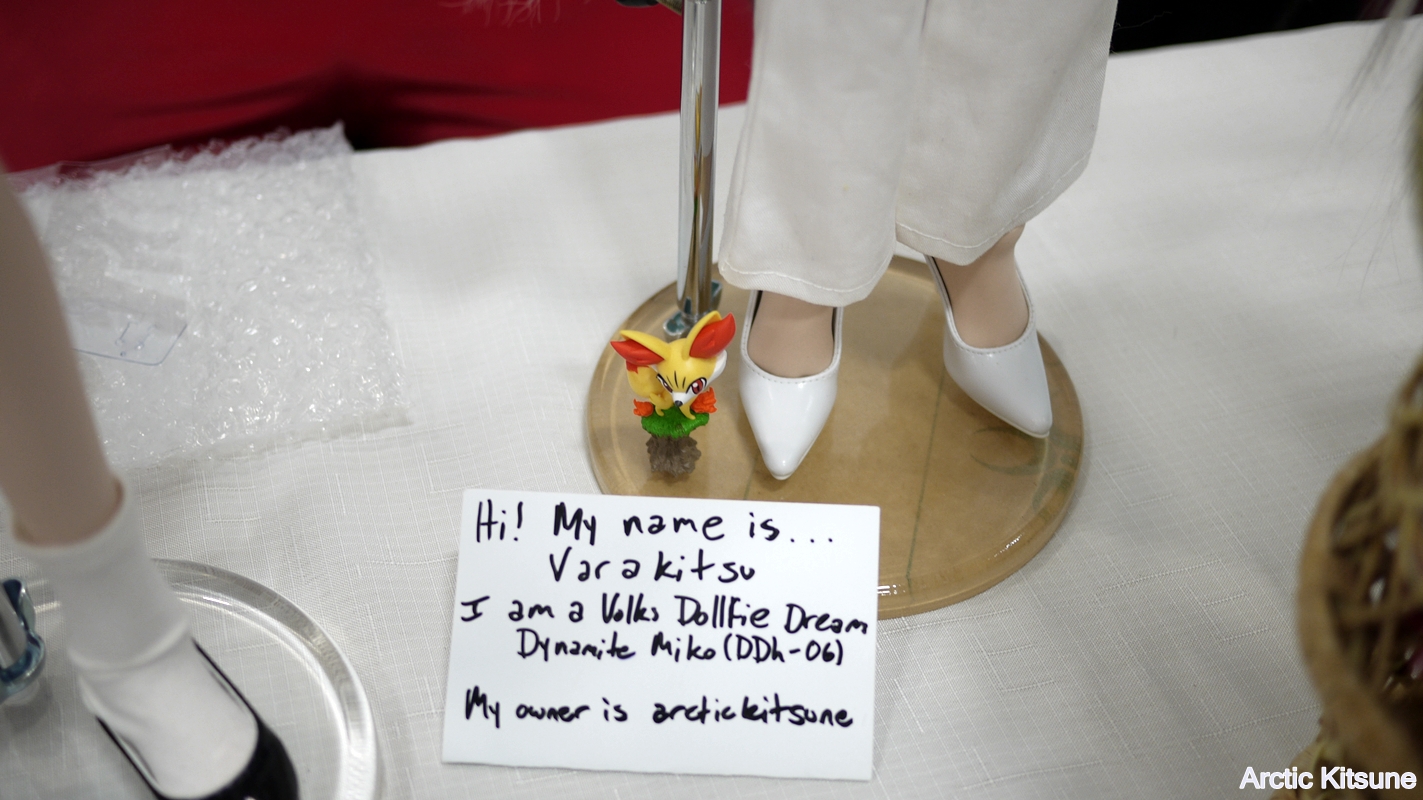 Hi! My name is...
Varakitsu
I am a Volks Dollfie Dream
Dynamite Miko (DDh-06)
My owner is arctickitsune
Arctic Kitsune